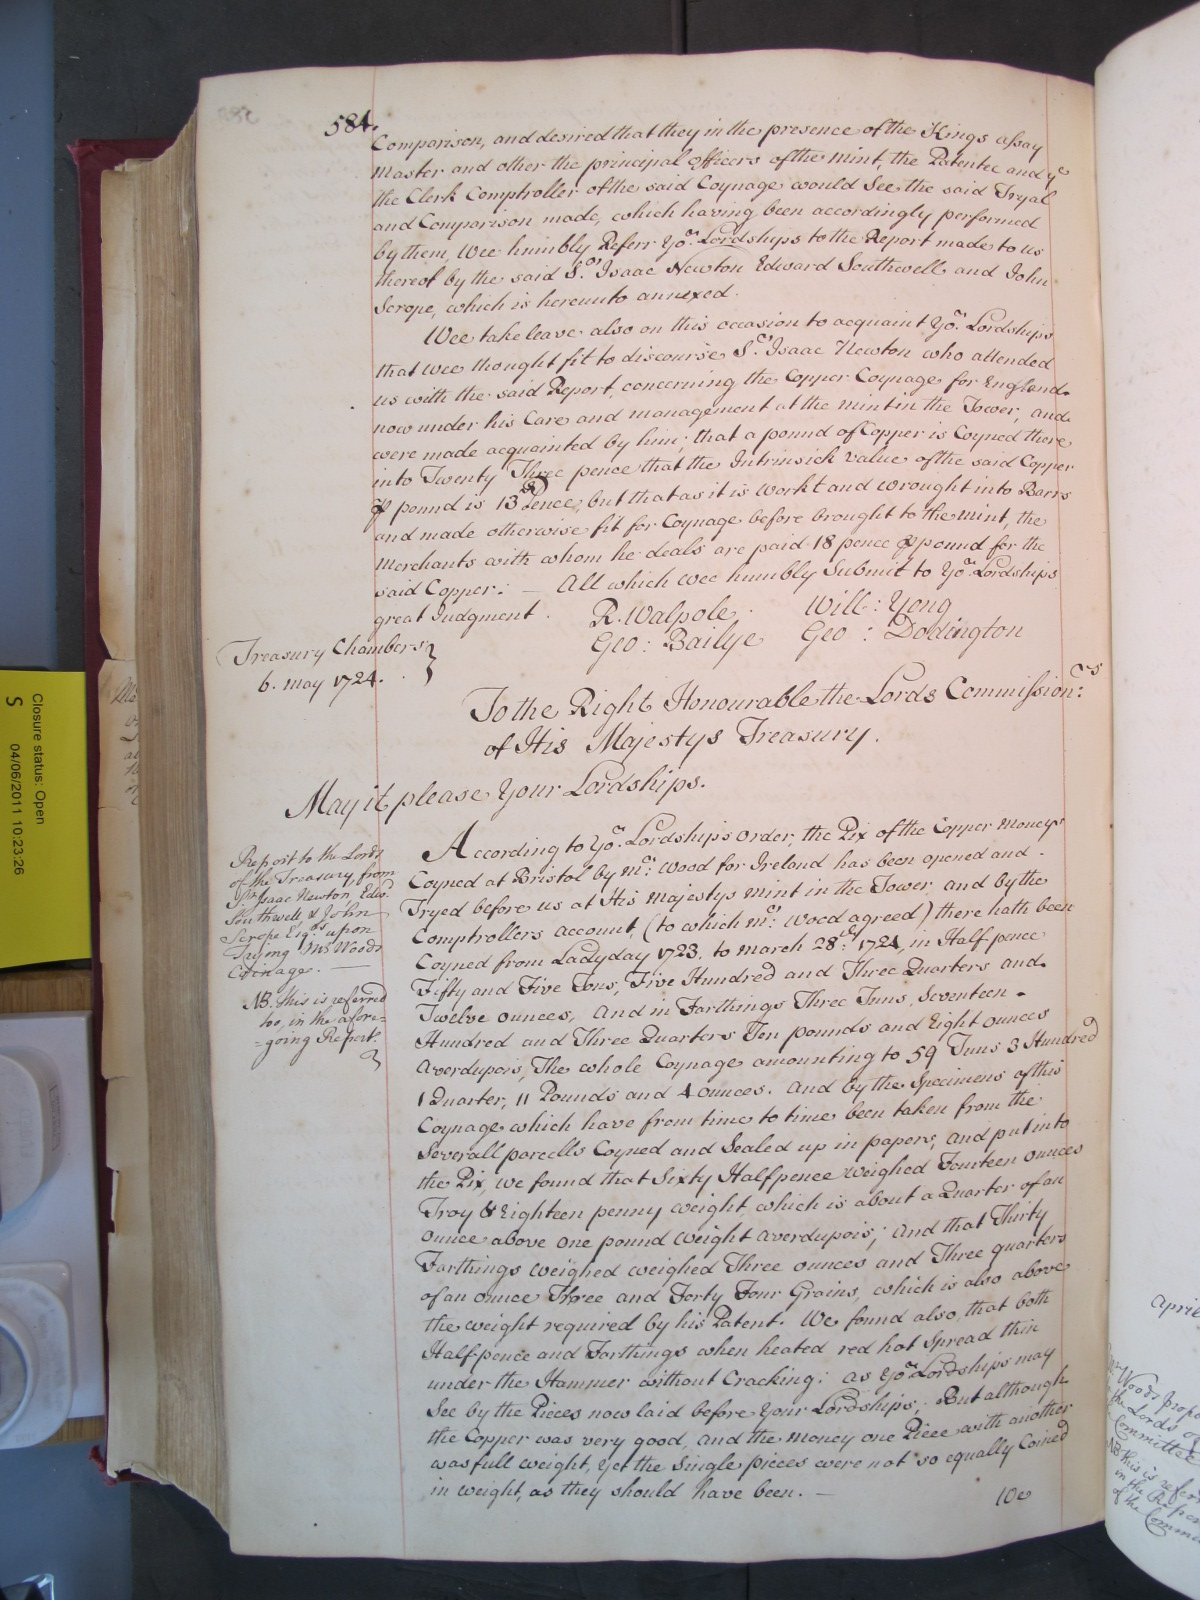 584.
Comparison, and desired that they in the presence of the Kings assay
Master and other the principal Officers of the Mint, the Patentee and yᵉ
the Clerk Comptroller of the said Coynage would See the said Tryal
and Comparison made, which having been accordingly performed
by them, Wee humbly Referr Yoʳ. Lordships to the Report made to us
thereof by the said Sʳ. Isaac Newton Edward Southwell and John
Scrope, which is hereunto annexed.
Wee take leave also on this occasion to acquaint Yoʳ. Lordships
that wee thought fit to discourse Sʳ. Isaac Newton who attended
us with the said Report, concerning the Copper Coynage for England
now under his Care and management at the mint in the Tower, and
were made acquainted by him; that a pound of Copper is Coyned there
into Twenty Three pence that the Intrinsick value of the said Copper
℘ pound is 13ᵈ Pence but that as it is workt and wrought into Barrs
and made otherwise fit for Coynage before brought to the mint, the
Merchants with whom he deals are paid 18 pence ℘ pound for the
said Copper: — All which wee humbly Submit to Yoʳ. Lordships
great Judgment. R. Walpole. Will: Yong
Geo: Bailye Geo: Dodington
Treasury Chambers
6. May 1724.
To the Right Honourable the Lords Commissionʳˢ:
of His Majestys Treasury.
May it please Your Lordships.
According to Yoʳ. Lordships order, the Pix of the Copper Moneys
Coyned at Bristol by Mʳ: Wood for Ireland has been opened and
Tryed before us at His Majestys Mint in the Tower, and by the
Comptrollers account, (to which Mʳ: Wood agreed) there hath been
Coyned from Ladyday 1723, to March 28ᵗʰ: 1724, in Half pence
Fifty and Five Tons, Five Hundred and Three Quarters and
Twelve ounces, And in Farthings Three Tuns, Seventeen
Hundred and Three Quarters Ten pounds and Eight ounces
Averdupois, The whole Coynage amounting to 59 Tuns 3 Hundred
1 Quarter, 11 Pounds and 4 Ounces. And by the Specimens of this
Coynage which have from time to time been taken from the
Severall parcells Coyned and Sealed up in papers, and put into
the Pix, we found that Sixty Halfpence weighed Fourteen ounces
Troy & Eighteen penny weight, which is about a Quarter of an
ounce above one pound weight Averdupois; And that Thirty
Farthings weighed weighed Three ounces and Three quarters
of an ounce Three and Forty Four Grains, which is also above
the weight required by his Patent. We found also, that both
Halfpence and Farthings when heated red hot Spread thin
under the Hammer without Cracking: as Yoʳ Lordships may
See by the Pieces now laid before Your Lordships; But although
the Copper was very good, and the money one Piece with another
was full weight, yet the Single pieces were not so equally Coined
in weight, as they should have been. —
Report to the Lords
of the Treasury, from
Sʳ Isaac Newton, Edwᵈ.
Southwell, & John
Scrope Esqʳˢ upon
Trying Mʳ Woods
Coinage. —
NB. this is referred
too, in the afore=
=going Report.
Closure status: Open
S
04/06/2011 10:23:26
April
Woods Propo
the Lords of
Committee
NB this is refer
in the Repor
of the Comm